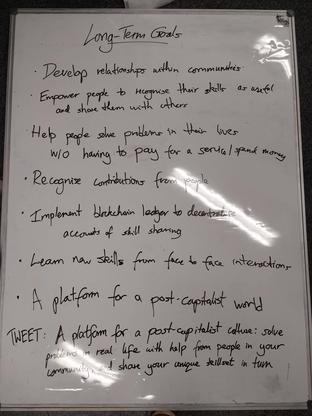 Long-Term Goals
· Develop relationships within communities
· Empower people to recognise their skills as useful
and share them with others
· Help people solve problems in their lives
w/o having to pay for a service/spend money
· Recognise contributions from people
· Implement blockchain ledger to decentralise
accounts of skill sharing
· Learn new skills from face to face interactions
· A platform for a post-capitalist world
TWEET: A platform for a post-capitalist culture: solve
problems in real life with help from people in your
community, and share your unique skillset in turn